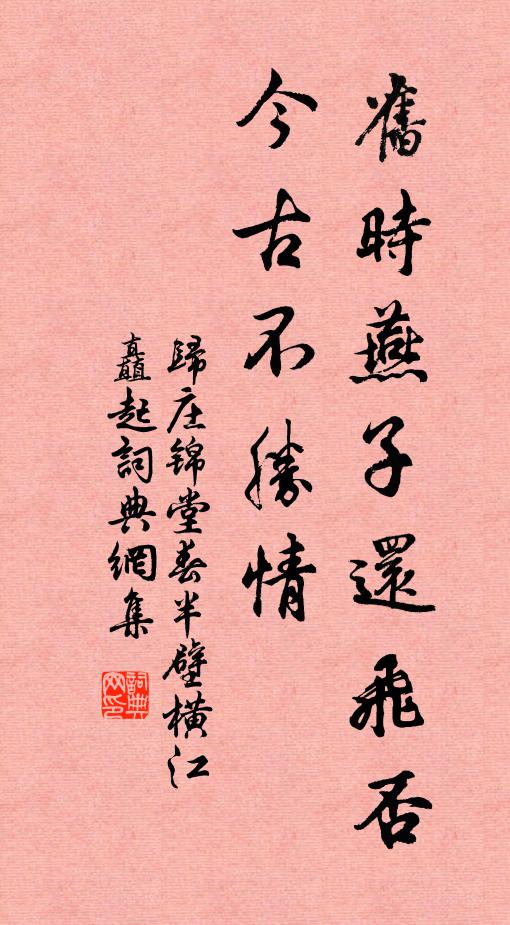 舊時燕子還飛否
今古不勝情
歸庄锦堂春半壁橫江
矗起詞典網集
詞典網印